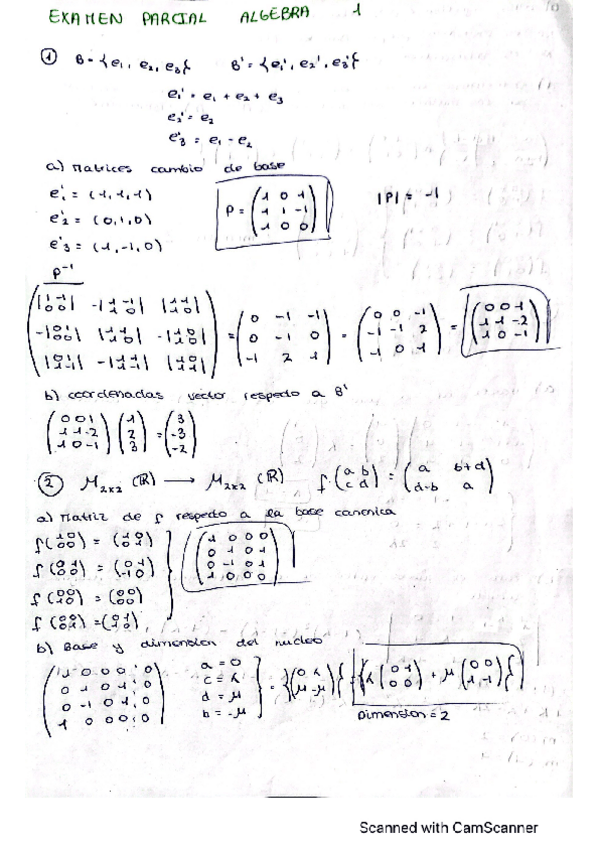 EXAMEN PARCIAL ALGEBRA 1
① B = {e₁, e₂, e₃} B' = {e₁', e₂', e₃'}
e₁' = e₁ + e₂ + e₃
e₂' = e₂
e'₃ = e₁ - e₂
a) Matrices cambio de base
e'₁ = (1, 1, 1)
e'₂ = (0, 1, 0)
e'₃ = (1, -1, 0)
P = (1 0 1 / 1 1 -1 / 1 0 0) |P| = -1
P⁻¹
= (0 -1 -1 / 0 -1 0 / -1 2 1) = (0 0 -1 / -1 -1 2 / -1 0 1) = (0 0 1 / 1 1 -2 / 1 0 -1)
b) coordenadas vector respecto a B'
(0 0 1 / 1 1 -2 / 1 0 -1) (1 / 2 / 3) = (3 / -3 / -2)
② M₂ₓ₂ (ℝ) → M₂ₓ₂ (ℝ) f (a b / c d) = (a b+d / d-b a)
a) Matriz de f respecto a la base canonica
f(1 0 / 0 0) = (1 0 / 0 1)
f(0 1 / 0 0) = (0 1 / -1 0)
f(0 0 / 1 0) = (0 0 / 0 0)
f(0 0 / 0 1) = (0 1 / 1 0)
(1 0 0 0 / 0 1 0 1 / 0 -1 0 1 / 1 0 0 0)
b) Base y dimension del nucleo
(1 0 0 0 : 0 / 0 1 0 1 : 0 / 0 -1 0 1 : 0 / 1 0 0 0 : 0)
a = 0
c = λ
d = μ
b = -μ
= {(0 λ / μ -μ)} = {λ (0 1 / 0 0) + μ (0 0 / 1 -1)}
Dimension = 2
Scanned with CamScanner